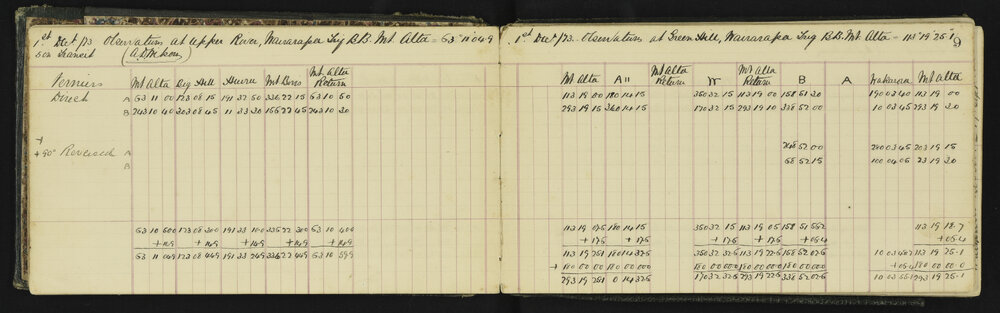 1st Dec /73 Observations at Upper River, Wairarapa Trig R.B. Mt Alta = 63° 11' 04.9
5 in Transit (A. D. Wilson)
Verniers Mt Alta Big Hill Huru Mt Bross Mt Alta Return
Direct A 63 11 00 123 08 15 191 32 50 336 22 15 63 10 50
B 243 10 40 303 08 45 11 33 30 156 22 45 243 10 30
+ 90° Reversed A
B
63 10 50.0 123 08 30.0 191 33 10.0 336 22 30.0 63 10 40.0
+14.9 +14.9 +14.9 +14.9 +14.9
63 11 04.9 123 08 44.9 191 33 24.9 336 22 44.9 63 10 59.9
1st Dec /73. Observations at Green Hill, Wairarapa Trig R.B. Mt Alta = 113° 19' 25.1
9
Mt Alta A11 Mt Alta Return W Mt Alta Return B A Mt Alta
113 19 00 180 14 15 350 32 15 113 19 00 158 51 30 190 03 40 113 19 00
293 19 15 360 14 15 170 32 15 293 19 10 338 52 00 10 03 45 293 19 30
248 52 00 280 03 45 203 19 15
68 52 15 100 04 05 23 19 30
113 19 07.5 180 14 15 350 32 15 113 19 05 158 51 56.2 113 19 18.7
+17.6 +17.6 +17.6 +17.6 +06.4 +06.4
113 19 25.1 180 14 32.6 350 32 32.6 113 19 22.6 158 52 02.6 113 19 25.1
+ 180 00 00.0 180 00 00.0 180 00 00.0 180 00 00.0 180 00 00.0 180 00 00.0
293 19 25.1 0 14 32.6 170 32 32.6 293 19 22.6 338 52 02.6 293 19 25.1